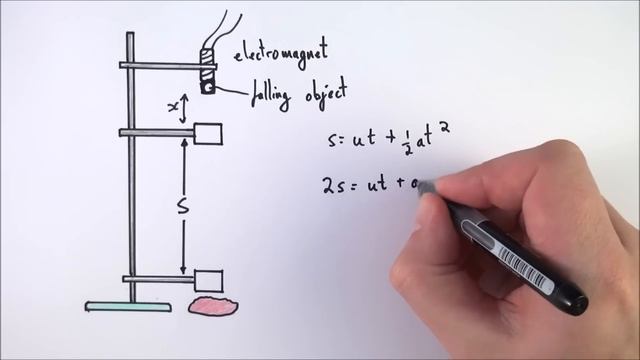 electromagnet
falling object
x
s = ut + ½at²
2s = ut + a
S